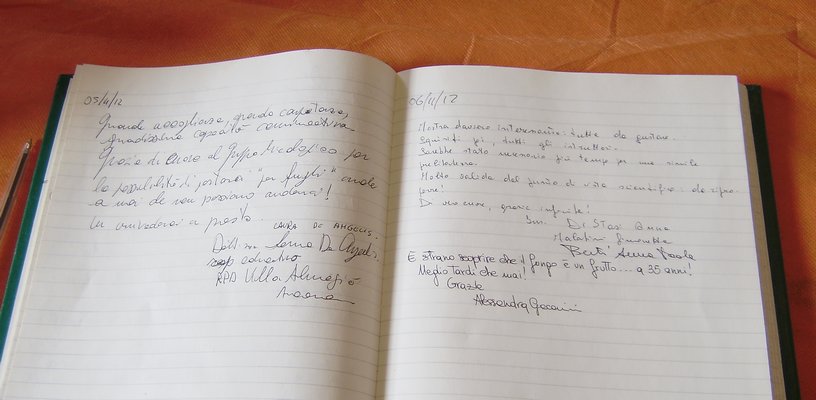 05/11/12
Grande accoglienza, grande competenza,
grandissima capacità comunicativa
Grazie di cuore al Gruppo Micologico per
la possibilità di portare "per funghi" anche
a noi che non possiamo andarci!
a presto.
LAURA DE ANGELIS
Dott.ssa
educativo
RPD Villa Almagià
Ancona
06/11/12
Mostra davvero interessante: tutta da gustare.
Squisiti poi, tutti gli istruttori.
Sarebbe stato necessario più tempo per una simile
Molto valida dal punto di vista scientifico: da ripro-
porre!
Di vero cuore, grazie infinite!
Di Stasi Anna
Berti Anna Paola
È strano scoprire che il fungo è un frutto... a 35 anni!
Meglio tardi che mai!
Grazie
Alessandra